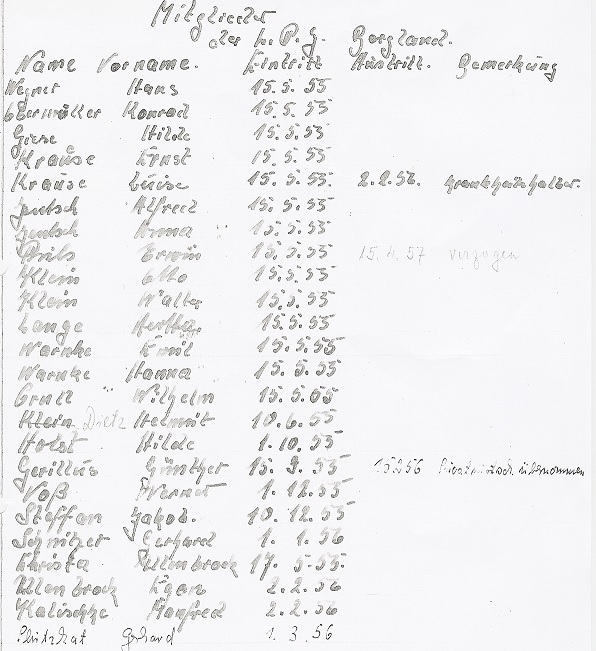 Mitglieder
der L. P. G. Bergland.
Name Vorname. Eintritt Austritt. Bemerkung
Wegner Hans 15. 5. 55
Obermüller Konrad 15. 5. 55
Giese Hilde 15. 5. 55
Krause Ernst 15. 5. 55
Krause Luise 15. 5. 55. 2. 2. 56. Krankheitshalber.
Jentsch Alfred 15. 5. 55
Jentsch Anna 15. 5. 55
Erwin 15. 5. 55 15. 4. 57 verzogen
Klein Otto 15. 5. 55
Klein Walter 15. 5. 55
Lange Hertha 15. 5. 55
Warnke Emil 15. 5. 55
Warnke Hanna 15. 5. 55
Wilhelm 15. 5. 55
Klein Dietz Helmut 10. 6. 55
Holst Hilde 1. 10. 55
Gerillus Günther 15. 9. 55 15 2 56 übernommen
Voß Werner 1. 12. 55
Steffan Jakob. 10. 12. 55
Schnitzer Gerhard 1. 1. 56
Christa Ellenbrock 17. 5. 55.
Ellenbrock Egon 2. 2. 56
Kalischke Manfred 2. 2. 56
Gerhard 1. 3. 56